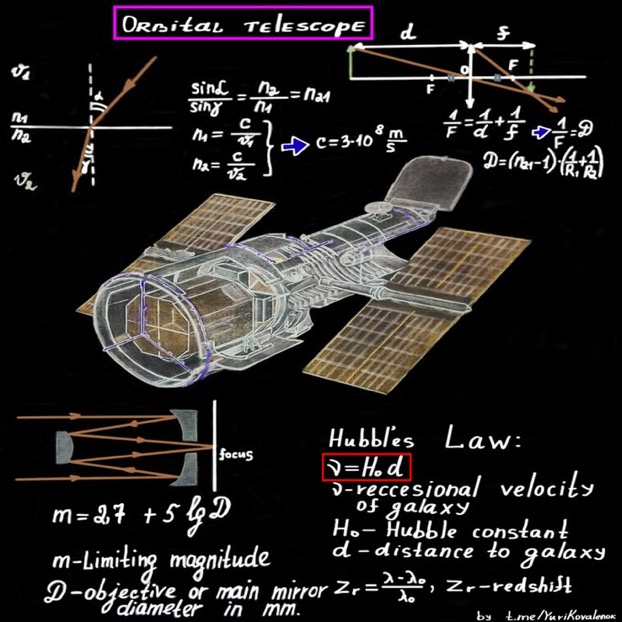 ORBITAL TELESCOPE
d
f
F
O
F
ϑ₁
α
n₁
n₂
γ
ϑ₂
sinα/sinγ = n₂/n₁ = n₂₁
n₁ = c/ϑ₁
n₂ = c/ϑ₂
c=3·10⁸ m/s
1/F = 1/d + 1/f
1/F = D
D=(n₂₁-1)·(1/R₁+1/R₂)
focus
m=2,7 + 5 lg D
m-Limiting magnitude
D-objective or main mirror
diameter in mm.
Hubble's Law:
ϑ=H₀d
ϑ-reccesional velocity
of galaxy
H₀- Hubble constant
d-distance to galaxy
Zᵣ = λ-λ₀/λ₀, Zᵣ-redshift
by t.me/YuriKovalenok